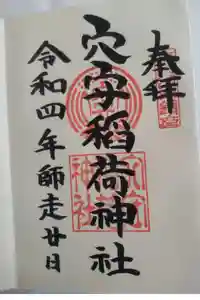 奉拝
穴守稲荷神社
令和四年師走廿日